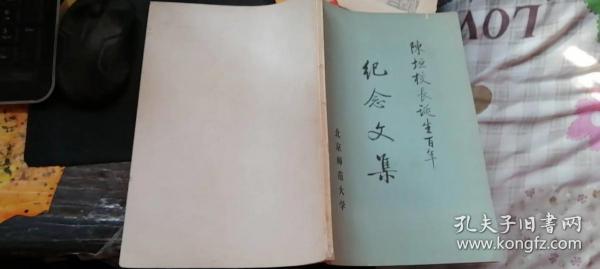 陈垣校长诞生百年
纪念文集
北京师范大学
LOVE
孔夫子旧书网
www.kongfz.com